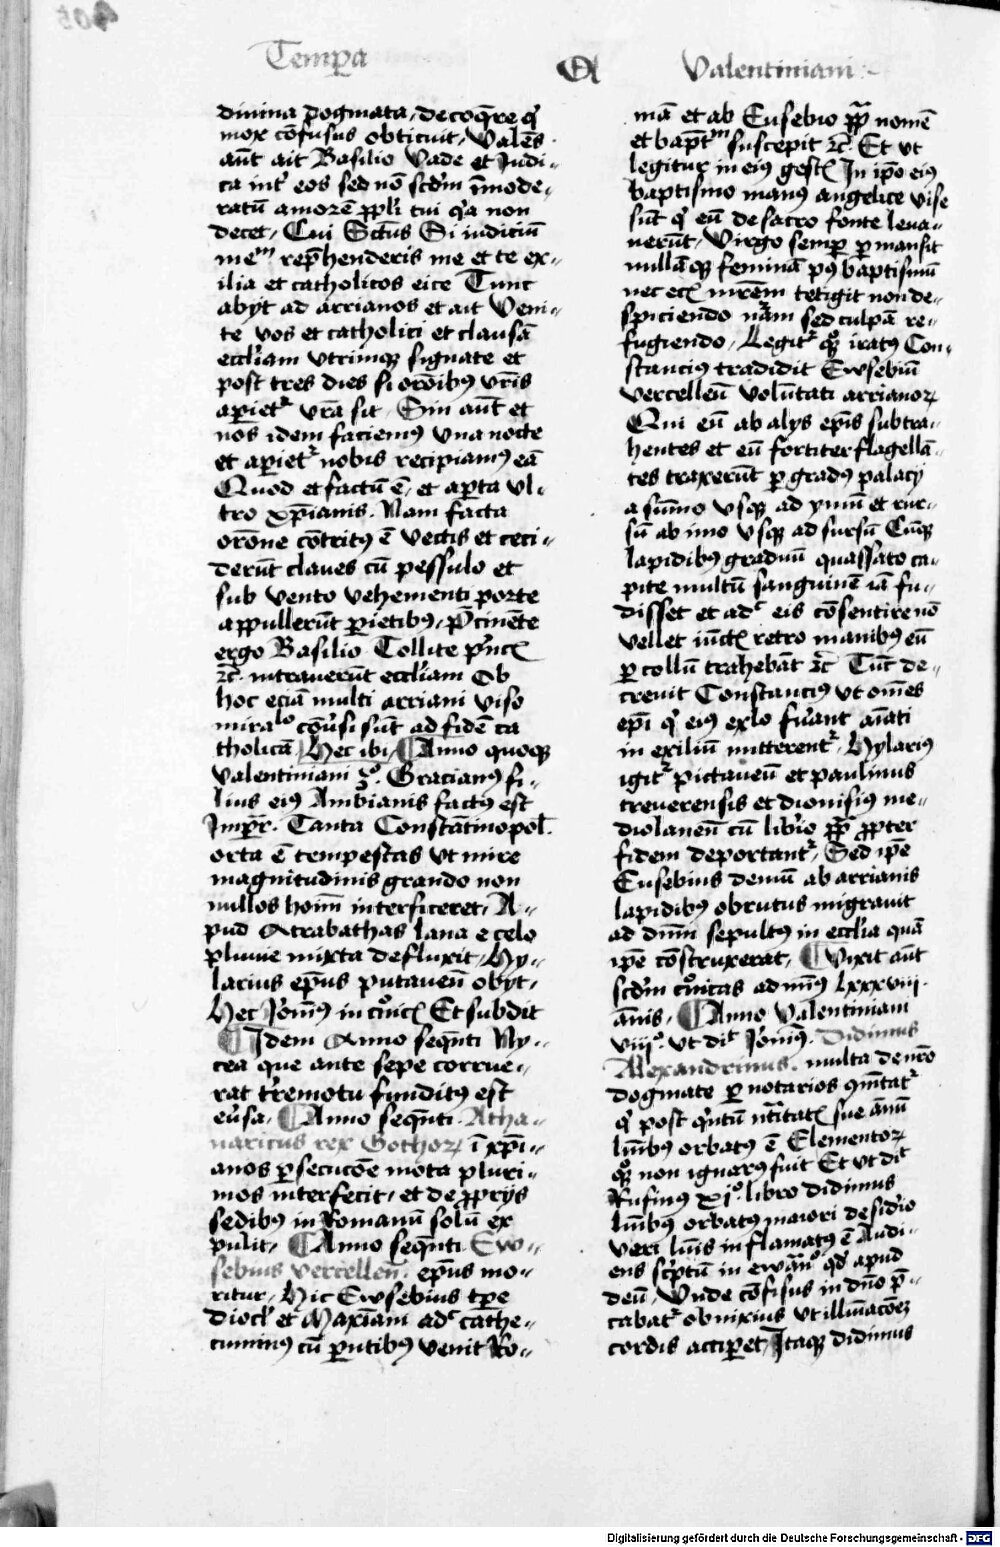 Temp̄a
Valentiniani
diuina dogmata, decoq̄re q̇
mox cōfusus obticuit, Valēs
aūt ait Basilio Vade et Iudi-
ca int̄ eos sed nō scd̄m īmode-
ratū amorē pp̄li tui q̇a non
decet, Cui Sc̄tus Si iudiciū
meᵐ rep̄henderis me et te ex-
ilia et catholicos eice Tunc
abyt ad arrianos et ait Veni-
te vos et catholici et clausā
eccl̄iam vtrimq; signate et
post tres dies si orōibus vr̄is
apiet᷑ vr̄a sit, Sin aūt et
nos idem faciemꝰ vna nocte
et apiet᷑ nobis recipiamꝰ eā
Quod et factū ē, et apta vl-
tro xp̄ianis. Nam facta
orōne cōtritꝰ ē vectis et ceci-
derūt claues cū pessulo et
sub vento vehementi porte
appullerūt pietibꝰ, P̄cinēte
ergo Basilio Tollite p̄nc̄
⁊c̄. intrauerūt eccl̄iam Ob
hoc eciā multi arriani viso
miraˡᵒ cōu̇si sūt ad fidē ca
tholicā Hec ibi, Anno quoq;
Valentiniani 3ᵒ. Gracianꝰ fi-
lius eiꝰ Ambianis factꝰ est
Imp̄r. Tanta Constātinopol̄
orta ē tempestas vt mire
magnitudinis grando non
nullos hoīm interficeret, A-
pud Atrabathas lana e celo
pluuie mixta defluxit, Hy-
larius ep̄us putaueñ obyt,
Hec Ioniꝰ in cr̄onic̄ Et subdit
Idem Anno seq̄nti Ny-
cea que ante sepe corrue-
rat tr̄emotu funditꝰ est
eu̇sa, Anno seq̄nti Atha-
naricus rex Gothoꝝ ī xp̄i-
anos p̱secucōe mota pluri-
mos interfecit, et de pp̄rijs
sedibꝰ in Romanū solū ex
pulit, Anno seq̄nti Ew-
sebius Vercelleñ. ep̄us mo-
ritur, Hic Ewsebius tp̄e
Diocl̄ et Maxīani adᶜ cathe-
cuminꝰ cū pntibꝰ venit Ro-
mā et ab Eusebio pp̄ nomē
et bapt̄ᵐ suscepit ⁊c̄. Et vt
legitur in eiꝰ gest̄ In ip̄o eiꝰ
baptismo manꝰ angelice vise
sūt q̇ eū de sacro fonte leua-
uerūt, Virgo semp̱ p̱mansit
nullāq; feminā pꝰ baptismū
nec ec̄ mr̄em tetigit non de-
spiciendo nr̄am sed culpā re-
fugiendo, Legit᷑ qꝫ iratꝰ Con-
stanciꝰ tradidit Ewsebiū
Vercelleū volūtati arrianoꝝ
Qui eū ab alys ep̄is subtra-
hentes et eū fortiter flagellā-
tes traxerūt p̱ gradꝰ palacij
a sūmo vsq; ad ymū et rur-
sū ab imo vsq; ad sursū Cūq;
lapidibꝰ graduū quassato ca-
pite multū sanguinē iā fu-
disset et adᶜ eis cōsentire nō
vellet iūct̄ retro manibꝰ eū
p̱ collū trahebāt ⁊c̄ Tūc de-
creuit Constanciꝰ vt om̄es
ep̄i q̇ eiꝰ exlo fu̇ant aīati
in exiliū mitterent᷑, Hylariꝰ
igit᷑ pictaueñ et paulinus
treuerensis et dionisiꝰ me-
diolaneñ cū lib̄io pp̄ pp̱ter
fidem deportant᷑, Sed ip̄e
Eusebius demū ab arrianis
lapidibꝰ obrutus migrauit
ad dn̄m sepultꝰ in eccl̄ia quā
ip̄e cōstruxerat, Vixit aūt
scd̄m cr̄onicas ad miñꝰ lxxxviij.
ānis, Anno Valentiniani
viijᵒ. vt dīt Ioniꝰ. Didimus
Alexandrinus. multa de nr̄o
dogmate p̱ notarios ꝯm̄tat᷑
q̇ post q̇ntū nītitat̄ sue ānū
lūibꝰ orbatꝰ ē Elementoꝝ
qꝫ non ignarꝰ fuit Et vt dīt
Rufinꝰ xjᵒ. libro Didimus
lūibꝰ orbatꝰ maiori desid̄io
veri lūis inflamatꝰ ē Audi-
ens sc̄ptū in ewāᵒ qd̄ apud
deū, Vnde cōfisus in dn̄o p̄-
cabat᷑ obnixius vt illūiacōeꝫ
cordis accip̱et, Itaq; didimus